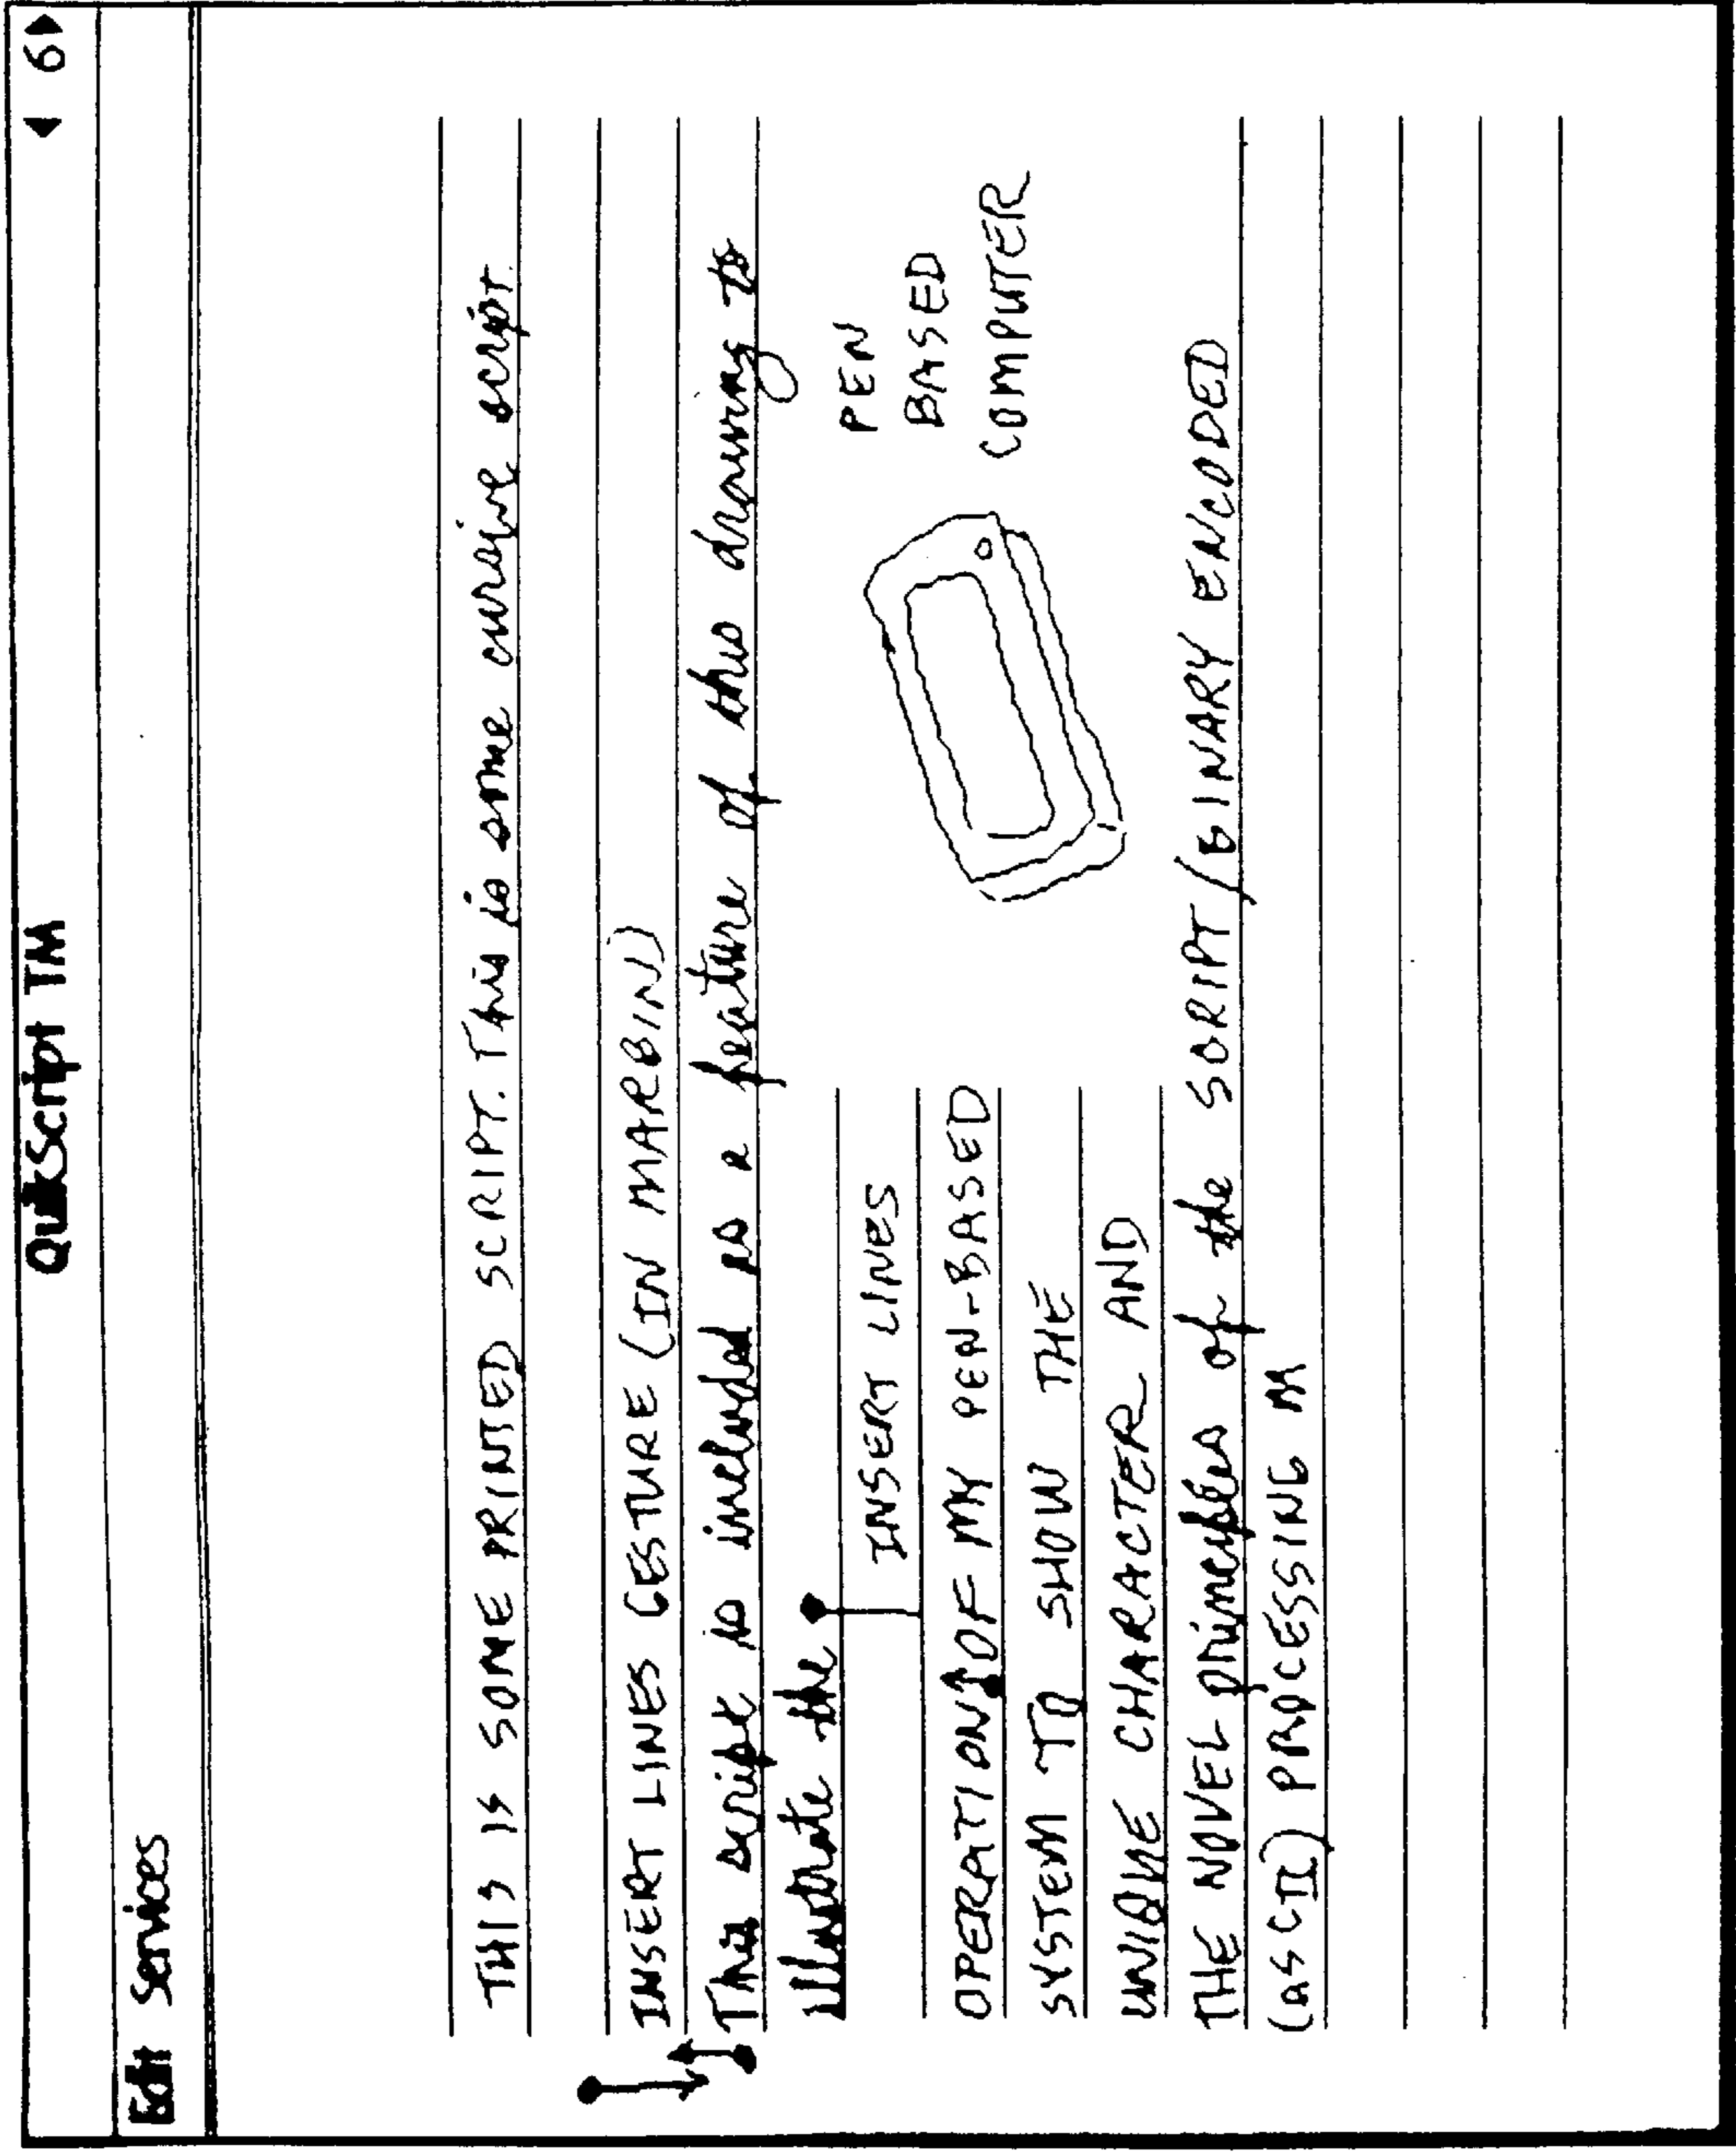 QuikScript TM
6
Edit Services
THIS IS SOME PRINTED SCRIPT. This is some cursive script.
INSERT LINES GESTURE (IN MARGIN)
This script is included as a feature of this drawing to
illustrate the
INSERT LINES
OPERATION OF MY PEN-BASED
SYSTEM TO SHOW THE
UNIQUE CHARACTER AND
THE NOVEL principles of the SCRIPT/BINARY ENCODED
(ASCII) PROCESSING M
PEN
BASED
COMPUTER